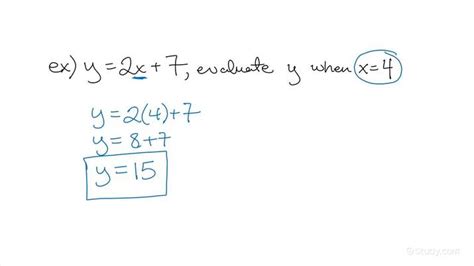 ex) y=2x+7, evaluate y when x=4
y=2(4)+7
y=8+7
y=15
Study.com